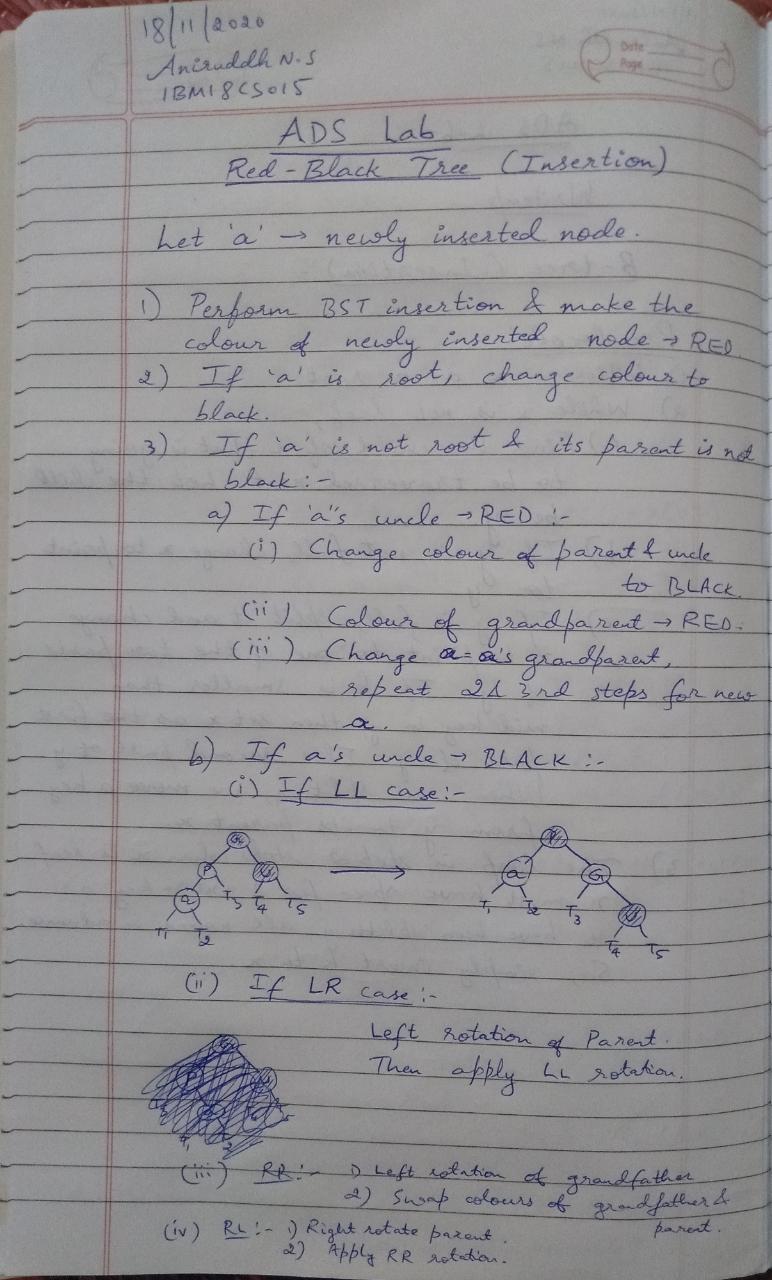 18/11/2020
Aniruddh N.S
1BM18CS015
Date
Page
ADS Lab
Red-Black Tree (Insertion)
Let 'a' → newly inserted node.
1) Perform BST insertion & make the
colour of newly inserted node → RED
2) If 'a' is root, change colour to
black.
3) If 'a' is not root & its parent is not
black:-
a) If 'a's uncle → RED :-
(i) Change colour of parent & uncle
to BLACK.
(ii) Colour of grandparent → RED.
(iii) Change a=a's grandparent,
repeat 2 & 3rd steps for new
a.
b) If a's uncle → BLACK :-
(i) If LL case:-
G P
P U a G
a T3 T4 T5 T1 T2 T3 U
T1 T2 T4 T5
(ii) If LR case :-
Left rotation of Parent.
Then apply LL rotation.
(iii) RR:- 1) Left rotation of grandfather
2) Swap colours of grandfather &
parent.
(iv) RL :- 1) Right rotate parent.
2) Apply RR rotation.